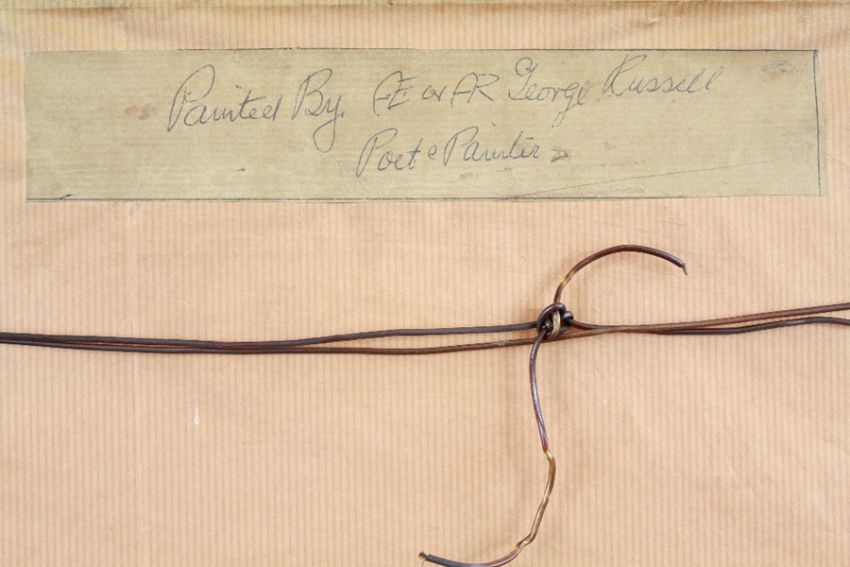 Painted By. Æ or AR George Russell
Poet e Painter